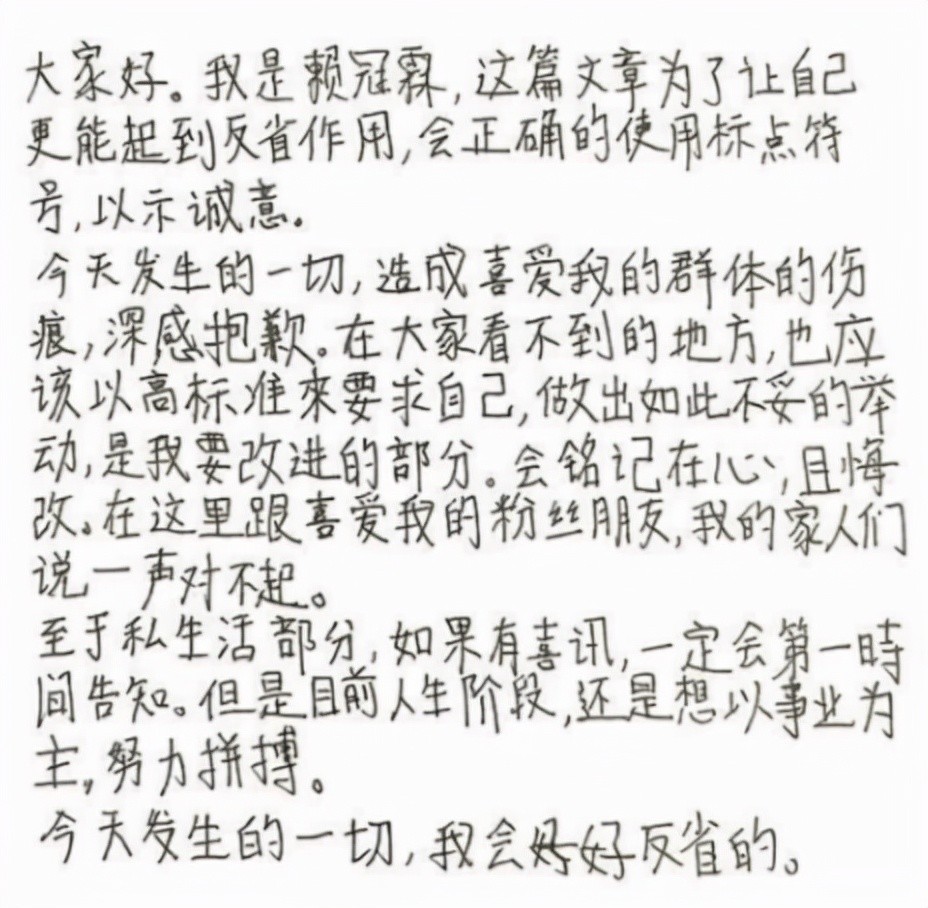 大家好。我是赖冠霖,这篇文章为了让自己
更能起到反省作用,会正确的使用标点符
号,以示诚意。
今天发生的一切,造成喜爱我的群体的伤
痕,深感抱歉。在大家看不到的地方,也应
该以高标准來要求自己,做出如此不妥的举
动,是我要改进的部分。会铭记在心,且悔
改。在这里跟喜爱我的粉丝朋友,我的家人们
说一声对不起。
至于私生活部分,如果有喜讯,一定会第一時
间告知。但是目前人生阶段,还是想以事业为
主,努力拼搏。
今天发生的一切,我会好好反省的。